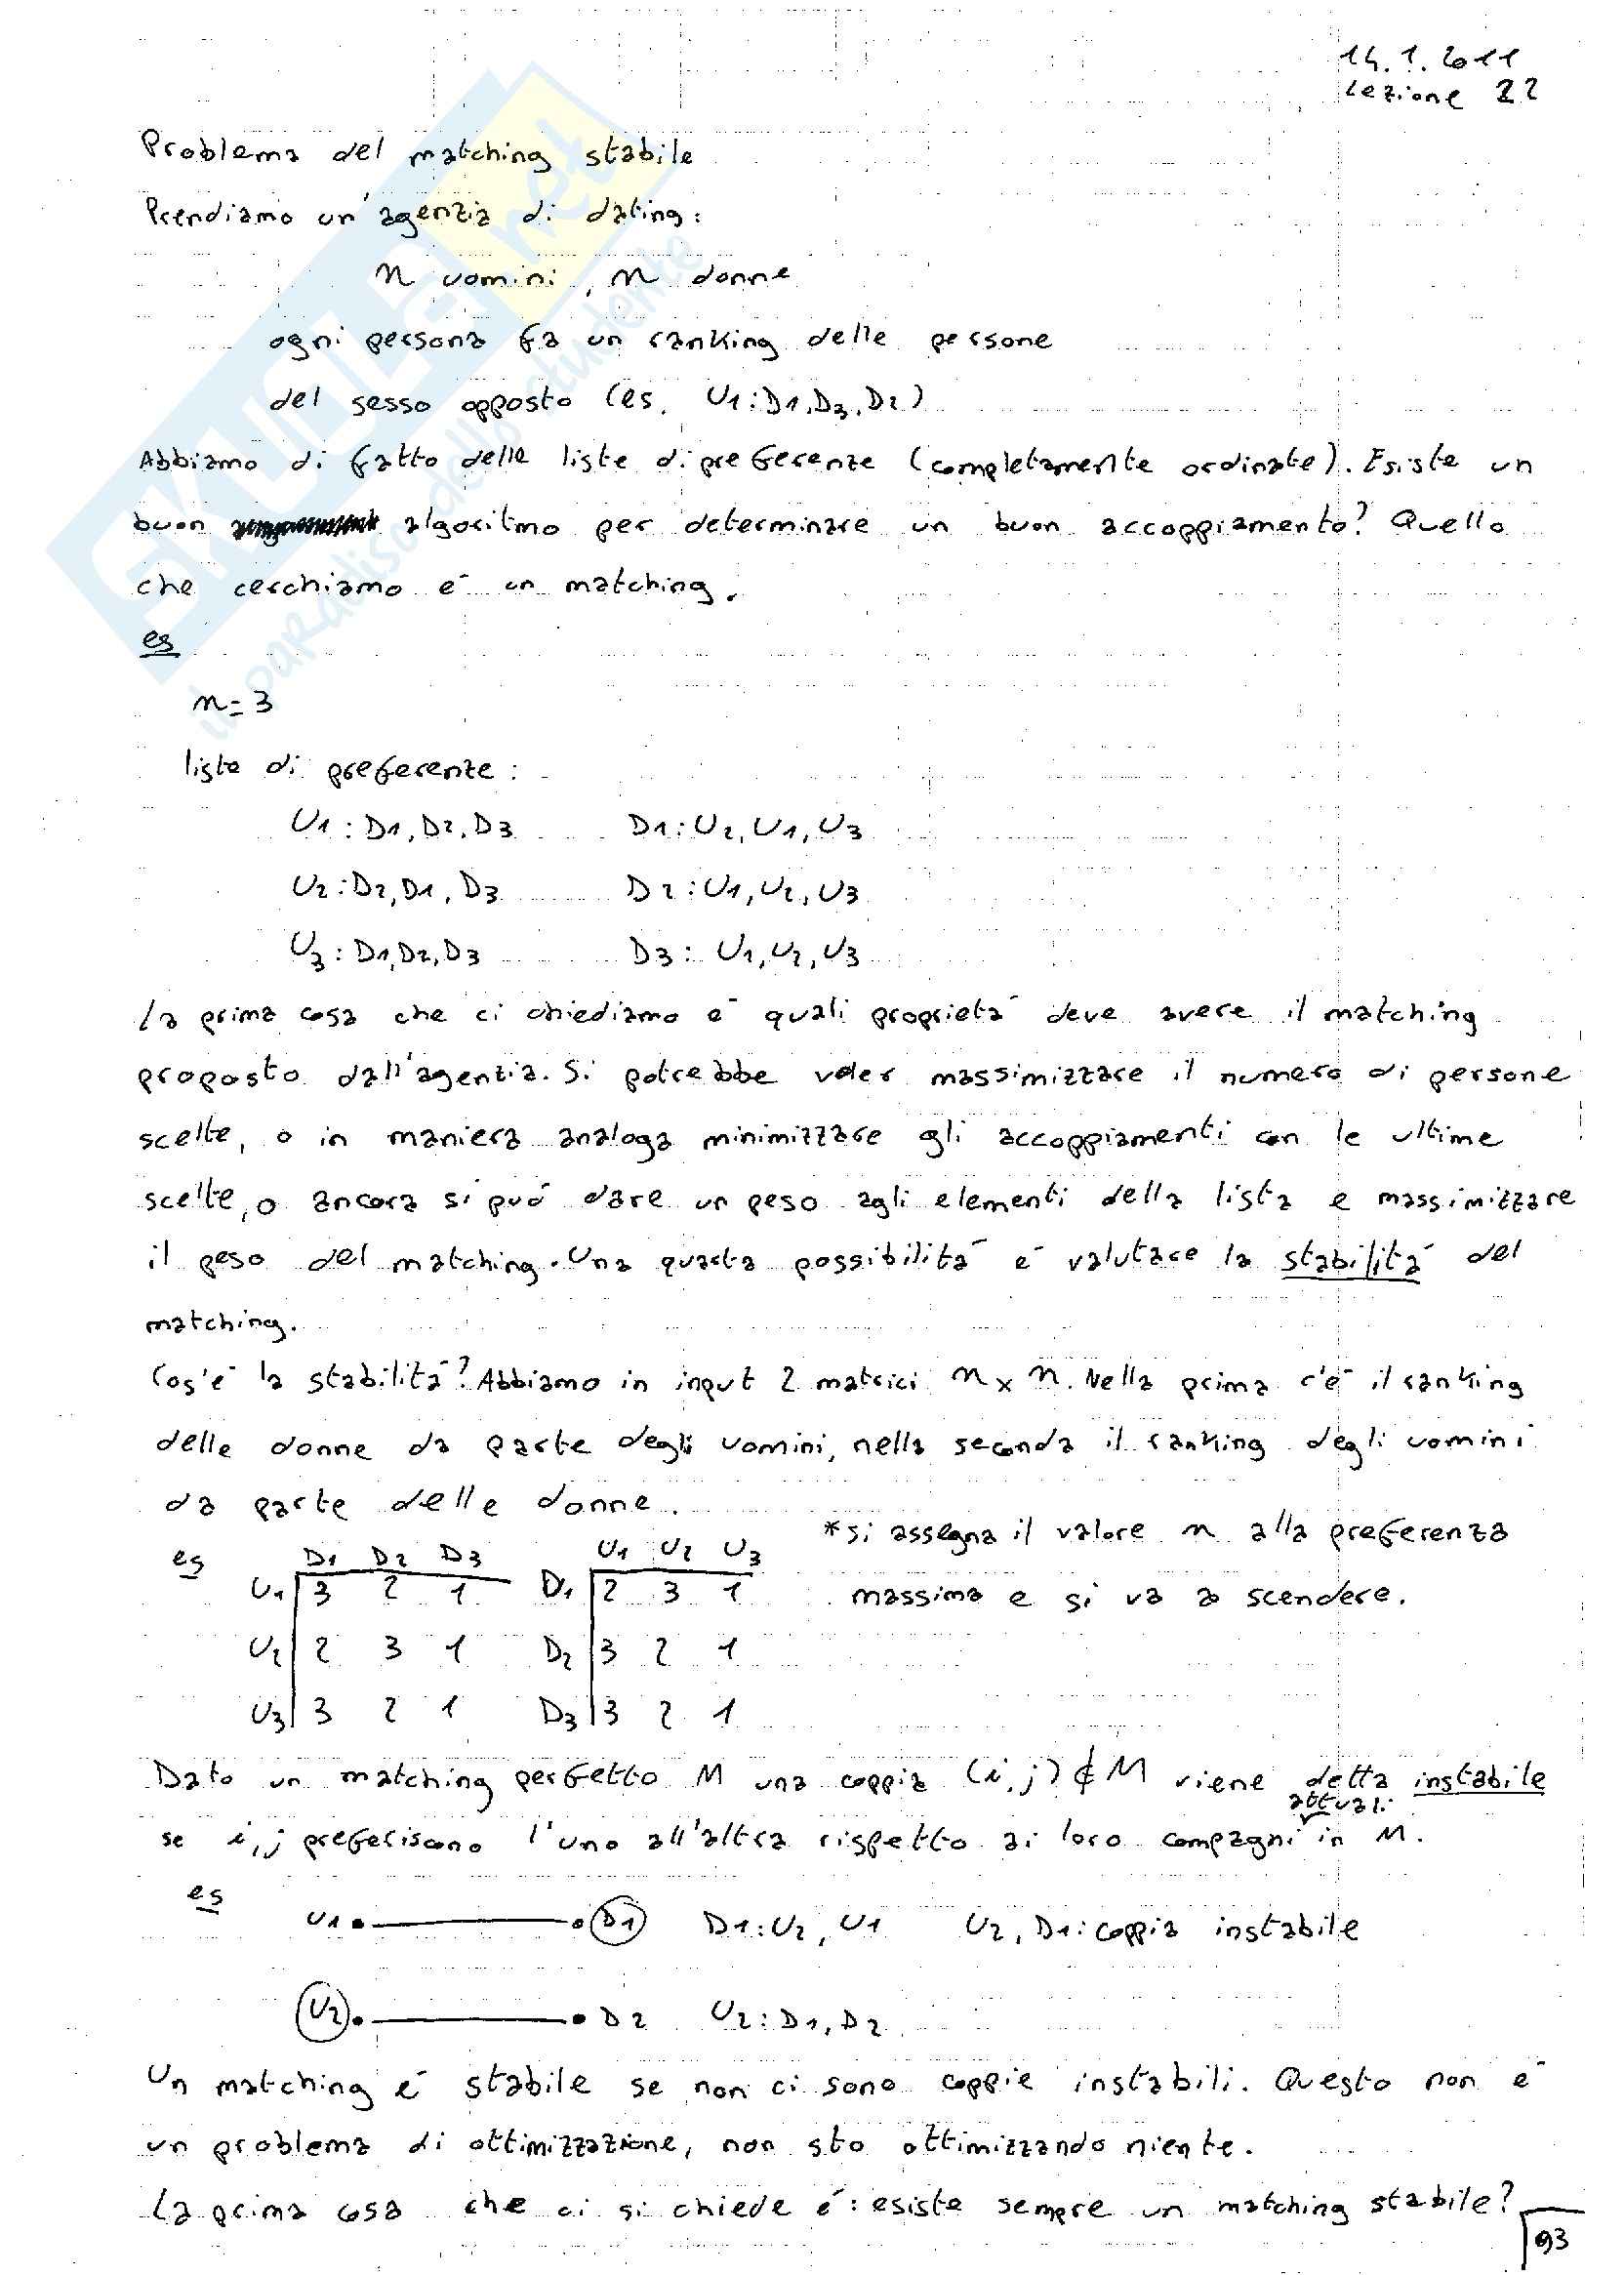 14.1.2011
Lezione 22
Problema del matching stabile
Prendiamo un'agenzia di dating:
n uomini, n donne
ogni persona fa un ranking delle persone
del sesso opposto (es. U1:D1,D3,D2)
Abbiamo di fatto delle liste di preferenze (completamente ordinate). Esiste un
buon algoritmo per determinare un buon accoppiamento? Quello
che cerchiamo è un matching.
es
n=3
liste di preferenze:
U1:D1,D2,D3 D1:U2,U1,U3
U2:D2,D1,D3 D2:U1,U2,U3
U3:D1,D2,D3 D3: U1,U2,U3
La prima cosa che ci chiediamo è quali proprietà deve avere il matching
proposto dall'agenzia. Si potrebbe voler massimizzare il numero di persone
scelte, o in maniera analoga minimizzare gli accoppiamenti con le ultime
scelte, o ancora si può dare un peso agli elementi della lista e massimizzare
il peso del matching. Una quarta possibilità è valutare la stabilità del
matching.
Cos'è la stabilità? Abbiamo in input 2 matrici n x n. Nella prima c'è il ranking
delle donne da parte degli uomini, nella seconda il ranking degli uomini
da parte delle donne.
*si assegna il valore n alla preferenza
massima e si va a scendere.
es D1 D2 D3 U1 U2 U3
U1 3 2 1 D1 2 3 1
U2 2 3 1 D2 3 2 1
U3 3 2 1 D3 3 2 1
Dato un matching perfetto M una coppia (i,j)∉M viene detta instabile
se i,j preferiscono l'uno all'altra rispetto ai loro compagni attuali in M.
es
U1 D1 D1:U2,U1 U2,D1:coppia instabile
U2 D2 U2:D1,D2
Un matching è stabile se non ci sono coppie instabili. Questo non è
un problema di ottimizzazione, non sto ottimizzando niente.
La prima cosa che ci si chiede è: esiste sempre un matching stabile?
93
SKUOLA.net
il paradiso dello studente